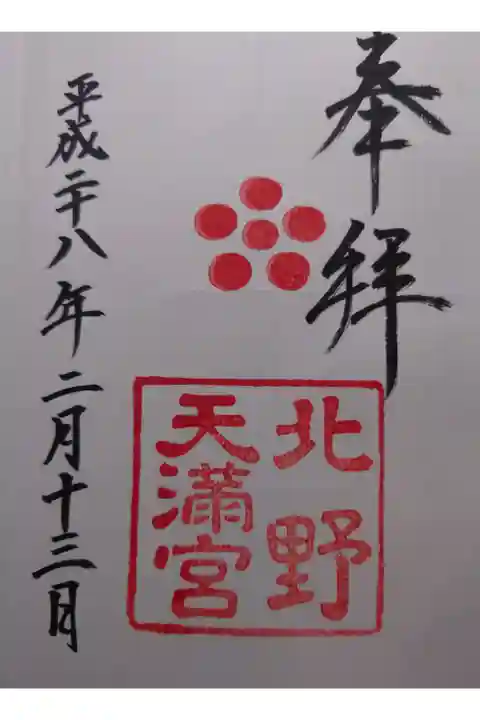 奉拜
北野
天満宮
平成二十八年二月十三日